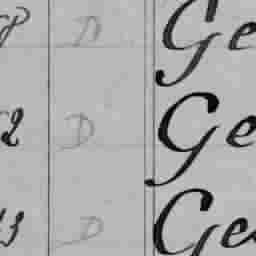 D Ge
2 D Ge
3 D Ge